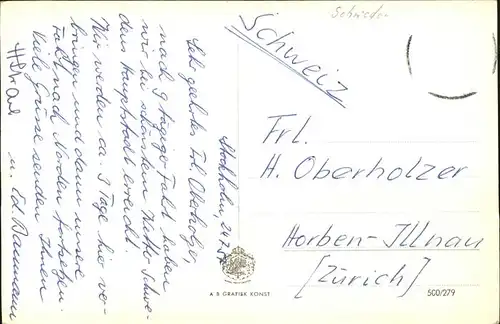 Stockholm, 24.7.
Sehr geehrtes Frl. Oberholzer,
nach 9 tägiger Fahrt haben
wir bei schönstem Wetter Schwe-
dens Hauptstadt erreicht.
Wir werden ca. 3 Tage hier ver-
bringen und dann unsere
Fahrt nach Norden fortsetzen.
Viele Grüsse senden Ihnen
u. Ed. Baumann
Schweiz
Schweden
Frl.
H. Oberholzer
Horben-Illnau
[Zürich]
A B GRAFISK KONST
500/279